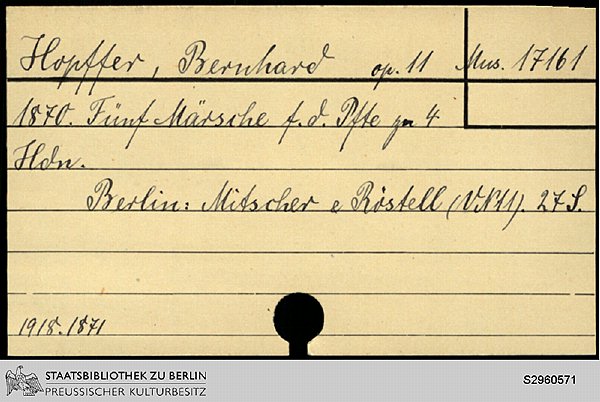 Hopffer, Bernhard op. 11 Mus. 17161
1870. Fünf Märsche f. d. Pfte zu 4
Hdn.
Berlin: Mitscher & Röstell (V.N. 11). 27 S.
1918.1871
STAATSBIBLIOTHEK ZU BERLIN
PREUSSISCHER KULTURBESITZ
S2960571